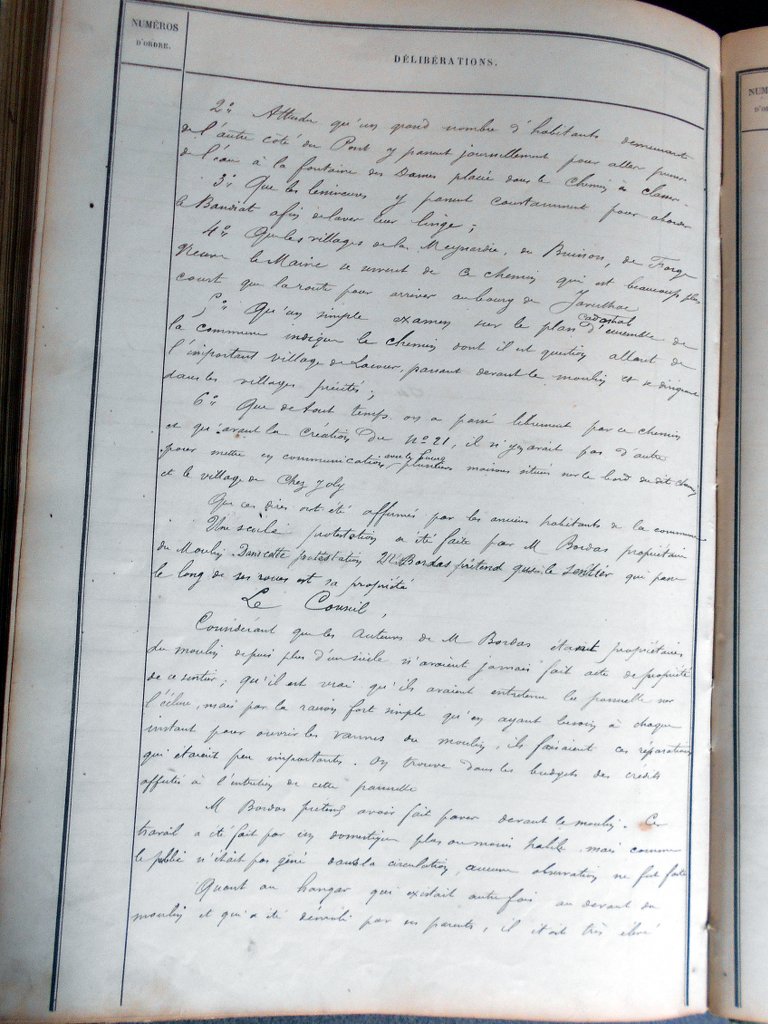 NUMÉROS
D'ORDRE.
DÉLIBÉRATIONS.
NUM
D'O
2° Attendu qu'un grand nombre d'habitants demeurant
de l'autre côté du Pont y passent journellement pour aller puiser
de l'eau à la fontaine des Dames placée dans le chemin à classer.
3° Que les lessiveuses y passent constamment pour aborder
le Bandiat afin de laver leur linge;
4° Que les villages de la Meynardie, du Buisson, de Forge
Neuve le Maine se servent de ce chemin qui est beaucoup plus
court que la route pour arriver au bourg de Javerlhac
5° Qu'un simple examen sur le plan cadastral d'ensemble de
la commune indique le chemin dont il est question allant de
l'important village de Lacour, passant devant le moulin et se dirigeant
dans les villages précités;
6° Que de tout temps on a passé librement par ce chemin
et qu'avant la création du N° 21, il n'y avait pas d'autre
pour mettre en communication avec le bourg plusieurs maisons situées sur le bord du dit chemin
et le village de Chez Joly
Que ces dires ont été affirmés par les anciens habitants de la commune
Une seule protestation a été faite par M Bordas propriétaire
du Moulin. Dans cette protestation M Bordas prétend que le sentier qui passe
le long de ses roues est sa propriété
Le Conseil,
Considérant que les auteurs de M Bordas étant propriétaires
du moulin depuis plus d'un siècle n'avaient jamais fait acte de propriété
de ce sentier; qu'il est vrai qu'ils avaient entretenu la passerelle sur
l'écluse, mais par la raison fort simple qu'en ayant besoin à chaque
instant pour ouvrir les vannes du moulin, ils faisaient ces réparations
qui étaient peu importantes. On trouve dans les budgets des crédits
affectés à l'entretien de cette passerelle
M Bordas prétend avoir fait paver devant le moulin. Ce
travail a été fait par un domestique plus ou moins habile mais comme
le public n'était pas gêné dans la circulation, aucune observation ne fut faite
Quant au hangar qui existait autrefois au devant du
moulin et qui a été démoli par ses parents, il était très élevé